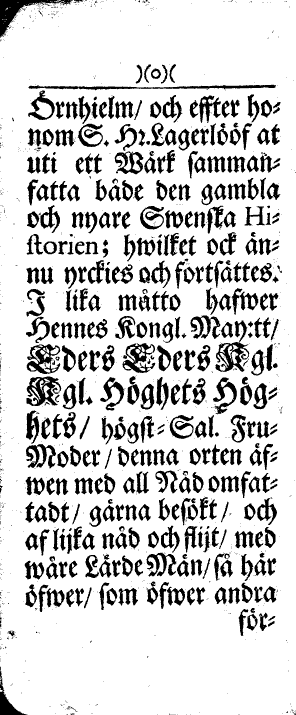 )(o)(
Örnhielm/ och effter ho-
nom S. Hr. Lagerlööf at
uti ett Wärk samman-
fatta både den gambla
och nyare Swenska Hi-
storien; hwilket ock än-
nu yrckies och fortsättes.
I lika måtto hafwer
Hennes Kongl. May:tt/
Eders Eders Kgl.
Kgl. Höghets Hög-
hets/ högst-Sal. Fru-
Moder/ denna orten äf-
wen med all Nåd omfat-
tadt/ gärna besökt/ och
af lijka nåd och flijt/ med
wåre Lärde Män/ så här
öfwer/ som öfwer andra
för-